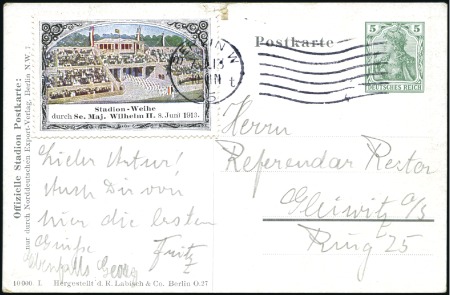 Offizielle Stadion Postkarte:
nur durch Norddeutschen Export-Verlag, Berlin N.W. 7
Stadion-Weihe
durch Se. Maj. Wilhelm II. 8. Juni 1913.
BERLIN N
Postkarte
5 5
DEUTSCHES REICH
Herrn
Referendar Restor
Gleiwitz O/S
Ring 25
Lieber Artur!
Auch Dir von
hier die besten
Grüße Fritz
Ebenfalls Georg
10 000 I. Hergestellt d. R. Labisch & Co. Berlin O.27